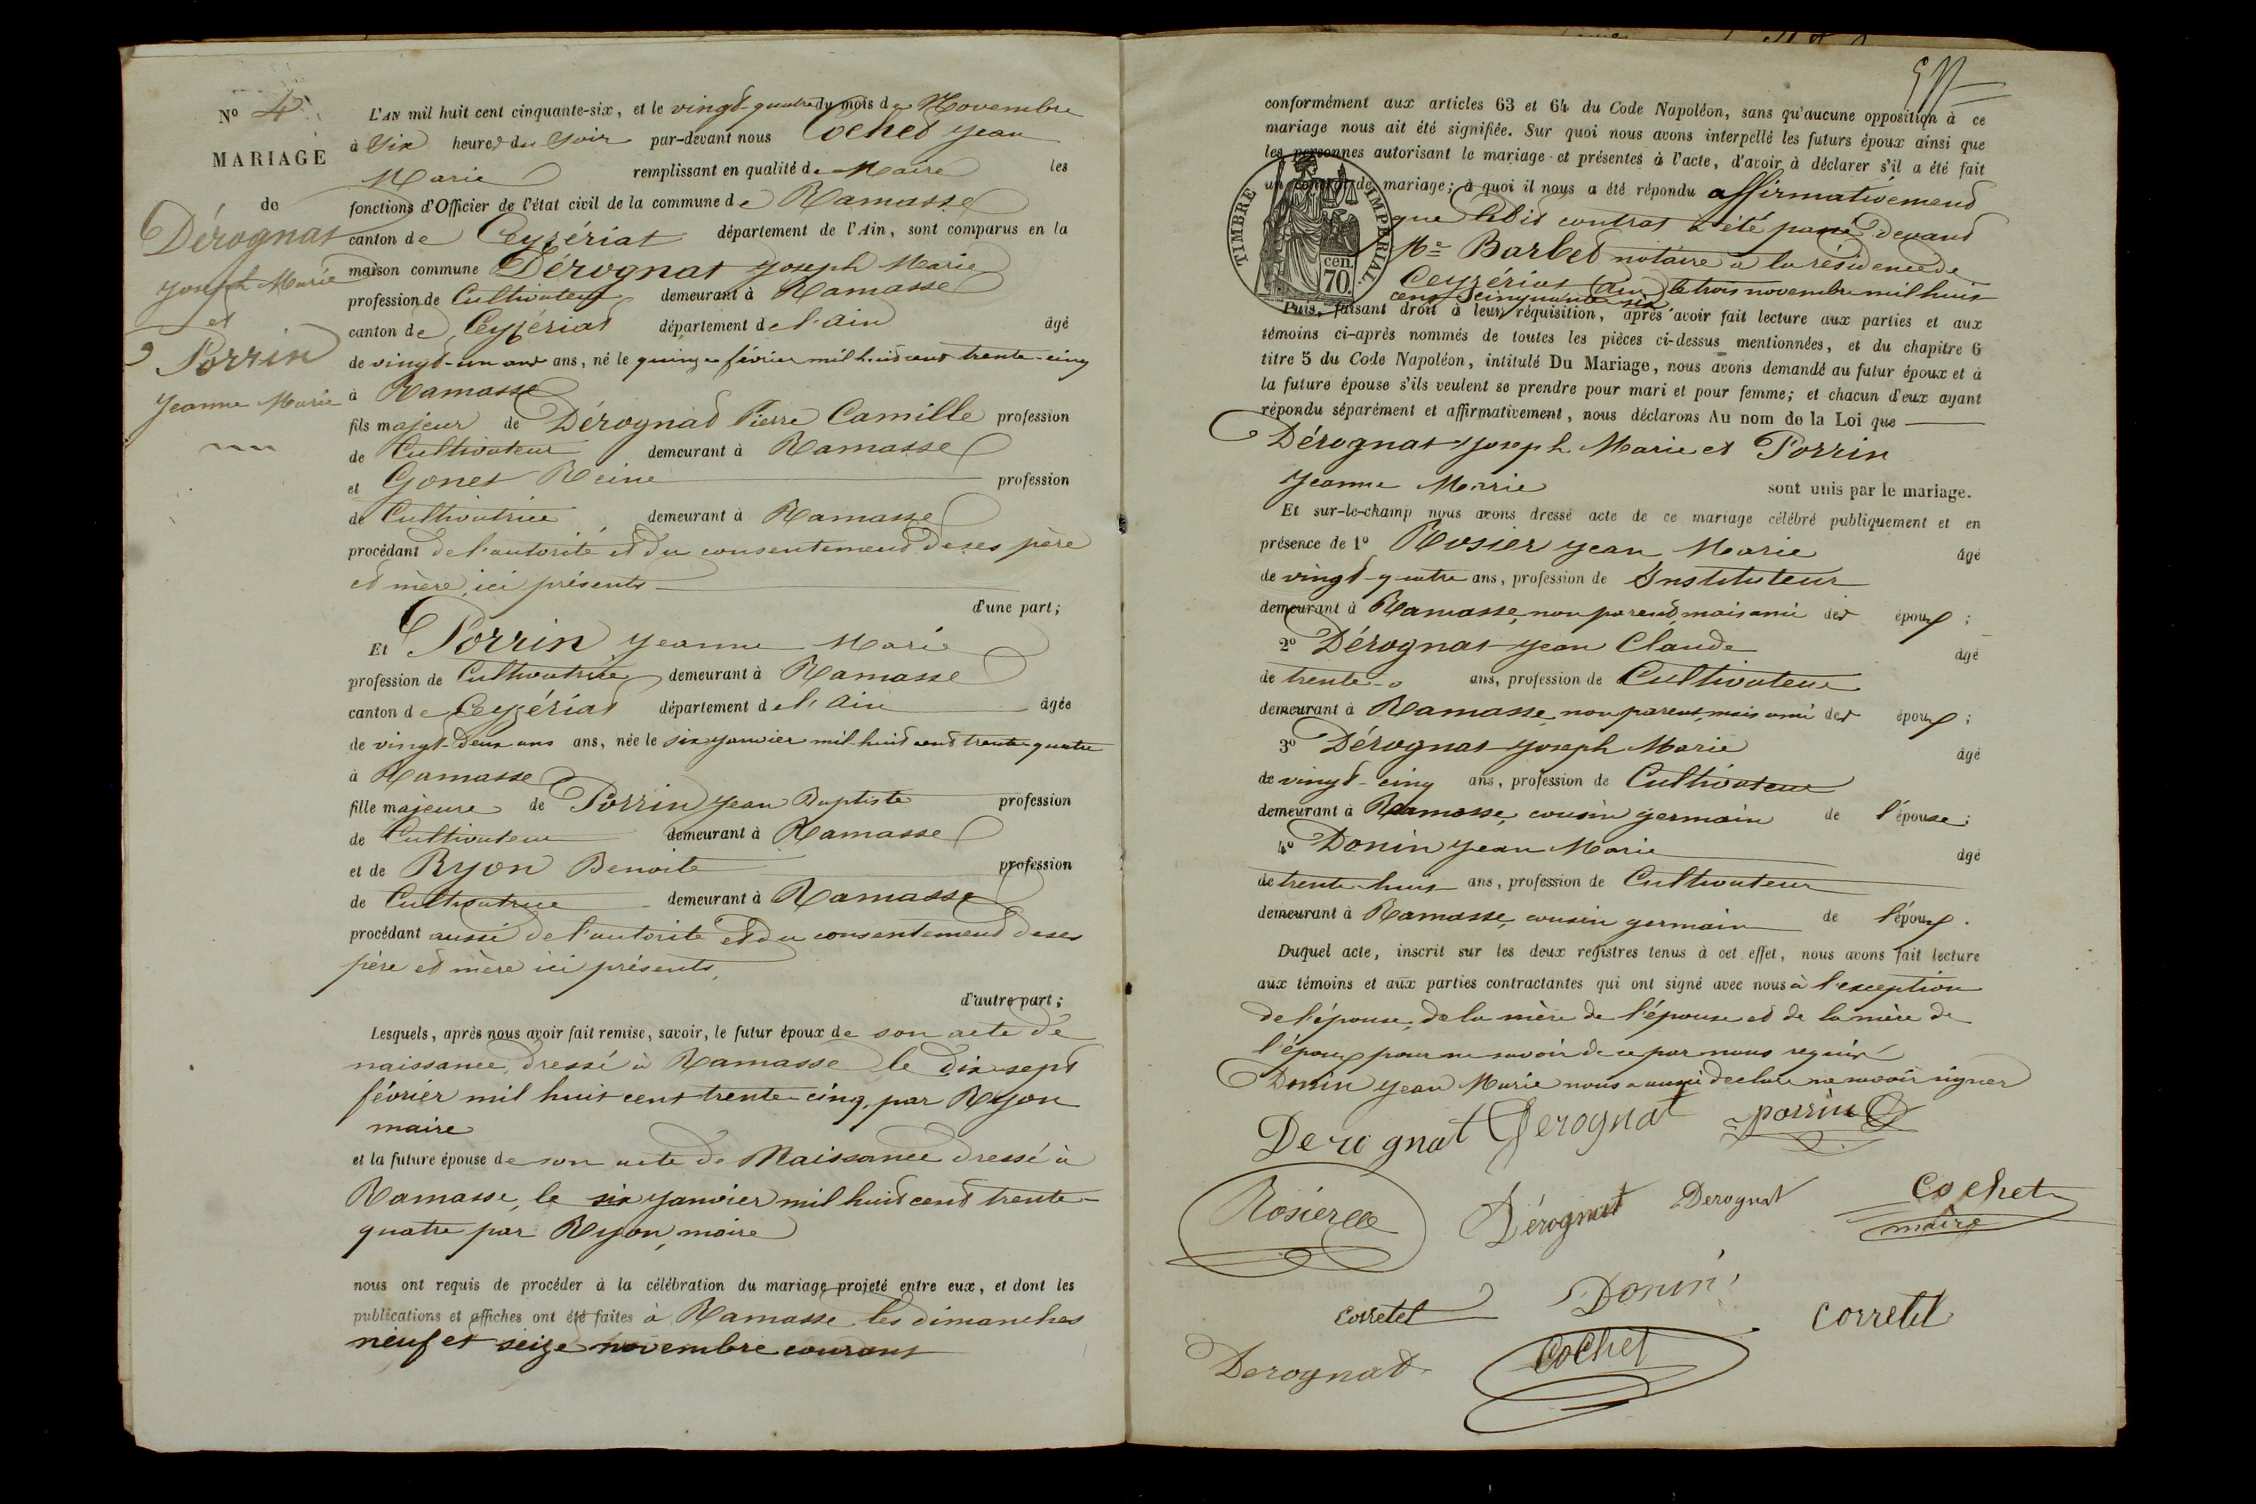 N° 4
MARIAGE
de
Dérognat
Joseph Marie
et
Porrin
Jeanne Marie
L'AN mil huit cent cinquante-six, et le vingt-quatre du mois de Novembre
à Six heures du Soir par-devant nous Cochet Jean
Marie remplissant en qualité de Maire les
fonctions d'Officier de l'état civil de la commune de Ramasse
canton de Ceyzériat département de l'Ain, sont comparus en la
maison commune Dérognat Joseph Marie
profession de Cultivateur demeurant à Ramasse
canton de Ceyzériat département de l'Ain âgé
de vingt-un ans ans, né le quinze février mil huit cent trente-cinq
à Ramasse
fils majeur de Dérognat Pierre Camille profession
de Cultivateur demeurant à Ramasse
et Gonet Reine profession
de Cultivatrice demeurant à Ramasse
procédant de l'autorité et du consentement de ses père
et mère ici présents
d'une part;
Et Porrin Jeanne Marie
profession de Cultivatrice demeurant à Ramasse
canton de Ceyzériat département de l'Ain âgée
de vingt-deux ans ans, née le six janvier mil huit cent trente-quatre
à Ramasse
fille majeure de Porrin Jean Baptiste profession
de Cultivateur demeurant à Ramasse
et de Ryon Benoite profession
de Cultivatrice demeurant à Ramasse
procédant aussi de l'autorité et du consentement de ses
père et mère ici présents,
d'autre part;
Lesquels, après nous avoir fait remise, savoir, le futur époux de son acte de
naissance, dressé à Ramasse le dix-sept
février mil huit cent trente-cinq, par Ryon
maire
et la future épouse de son acte de Naissance dressé à
Ramasse, le six janvier mil huit cent trente-
quatre par Ryon, maire
nous ont requis de procéder à la célébration du mariage projeté entre eux, et dont les
publications et affiches ont été faites à Ramasse les dimanches
neuf et seize novembre courant
conformément aux articles 63 et 64 du Code Napoléon, sans qu'aucune opposition à ce
mariage nous ait été signifiée. Sur quoi nous avons interpellé les futurs époux ainsi que
les personnes autorisant le mariage et présentes à l'acte, d'avoir à déclarer s'il a été fait
un contrat de mariage; à quoi il nous a été répondu affirmativement
que ledit contrat a été passé devant
Me Barbet notaire à la résidence de
Ceyzériat (Ain) le trois novembre mil huit
cent cinquante six
TIMBRE IMPÉRIAL
70 cen.
Puis, faisant droit à leur réquisition, après avoir fait lecture aux parties et aux
témoins ci-après nommés de toutes les pièces ci-dessus mentionnées, et du chapitre 6
titre 5 du Code Napoléon, intitulé Du Mariage, nous avons demandé au futur époux et à
la future épouse s'ils veulent se prendre pour mari et pour femme; et chacun d'eux ayant
répondu séparément et affirmativement, nous déclarons Au nom de la Loi que
Dérognat Joseph Marie et Porrin
Jeanne Marie sont unis par le mariage.
Et sur-le-champ nous avons dressé acte de ce mariage célébré publiquement et en
présence de 1° Rosier Jean Marie âgé
de vingt-quatre ans, profession de Instituteur
demeurant à Ramasse, non parent, mais ami des époux;
2° Dérognat Jean Claude âgé
de trente ans, profession de Cultivateur
demeurant à Ramasse, non parent, mais ami des époux;
3° Dérognat Joseph Marie âgé
de vingt-cinq ans, profession de Cultivateur
demeurant à Ramasse, cousin germain de l'épouse;
4° Donin Jean Marie âgé
de trente-huit ans, profession de Cultivateur
demeurant à Ramasse, cousin germain de l'époux.
Duquel acte, inscrit sur les deux registres tenus à cet effet, nous avons fait lecture
aux témoins et aux parties contractantes qui ont signé avec nous à l'exception
de l'épouse, de la mère de l'épouse et de la mère de
l'époux pour ne savoir de ce par nous requis
Donin Jean Marie nous a aussi déclaré ne savoir signer
Derognat Derognat porrin
Rosier Dérognat Derognat Cochet
maire
Corretel Donin Corretel
Derognat Cochet